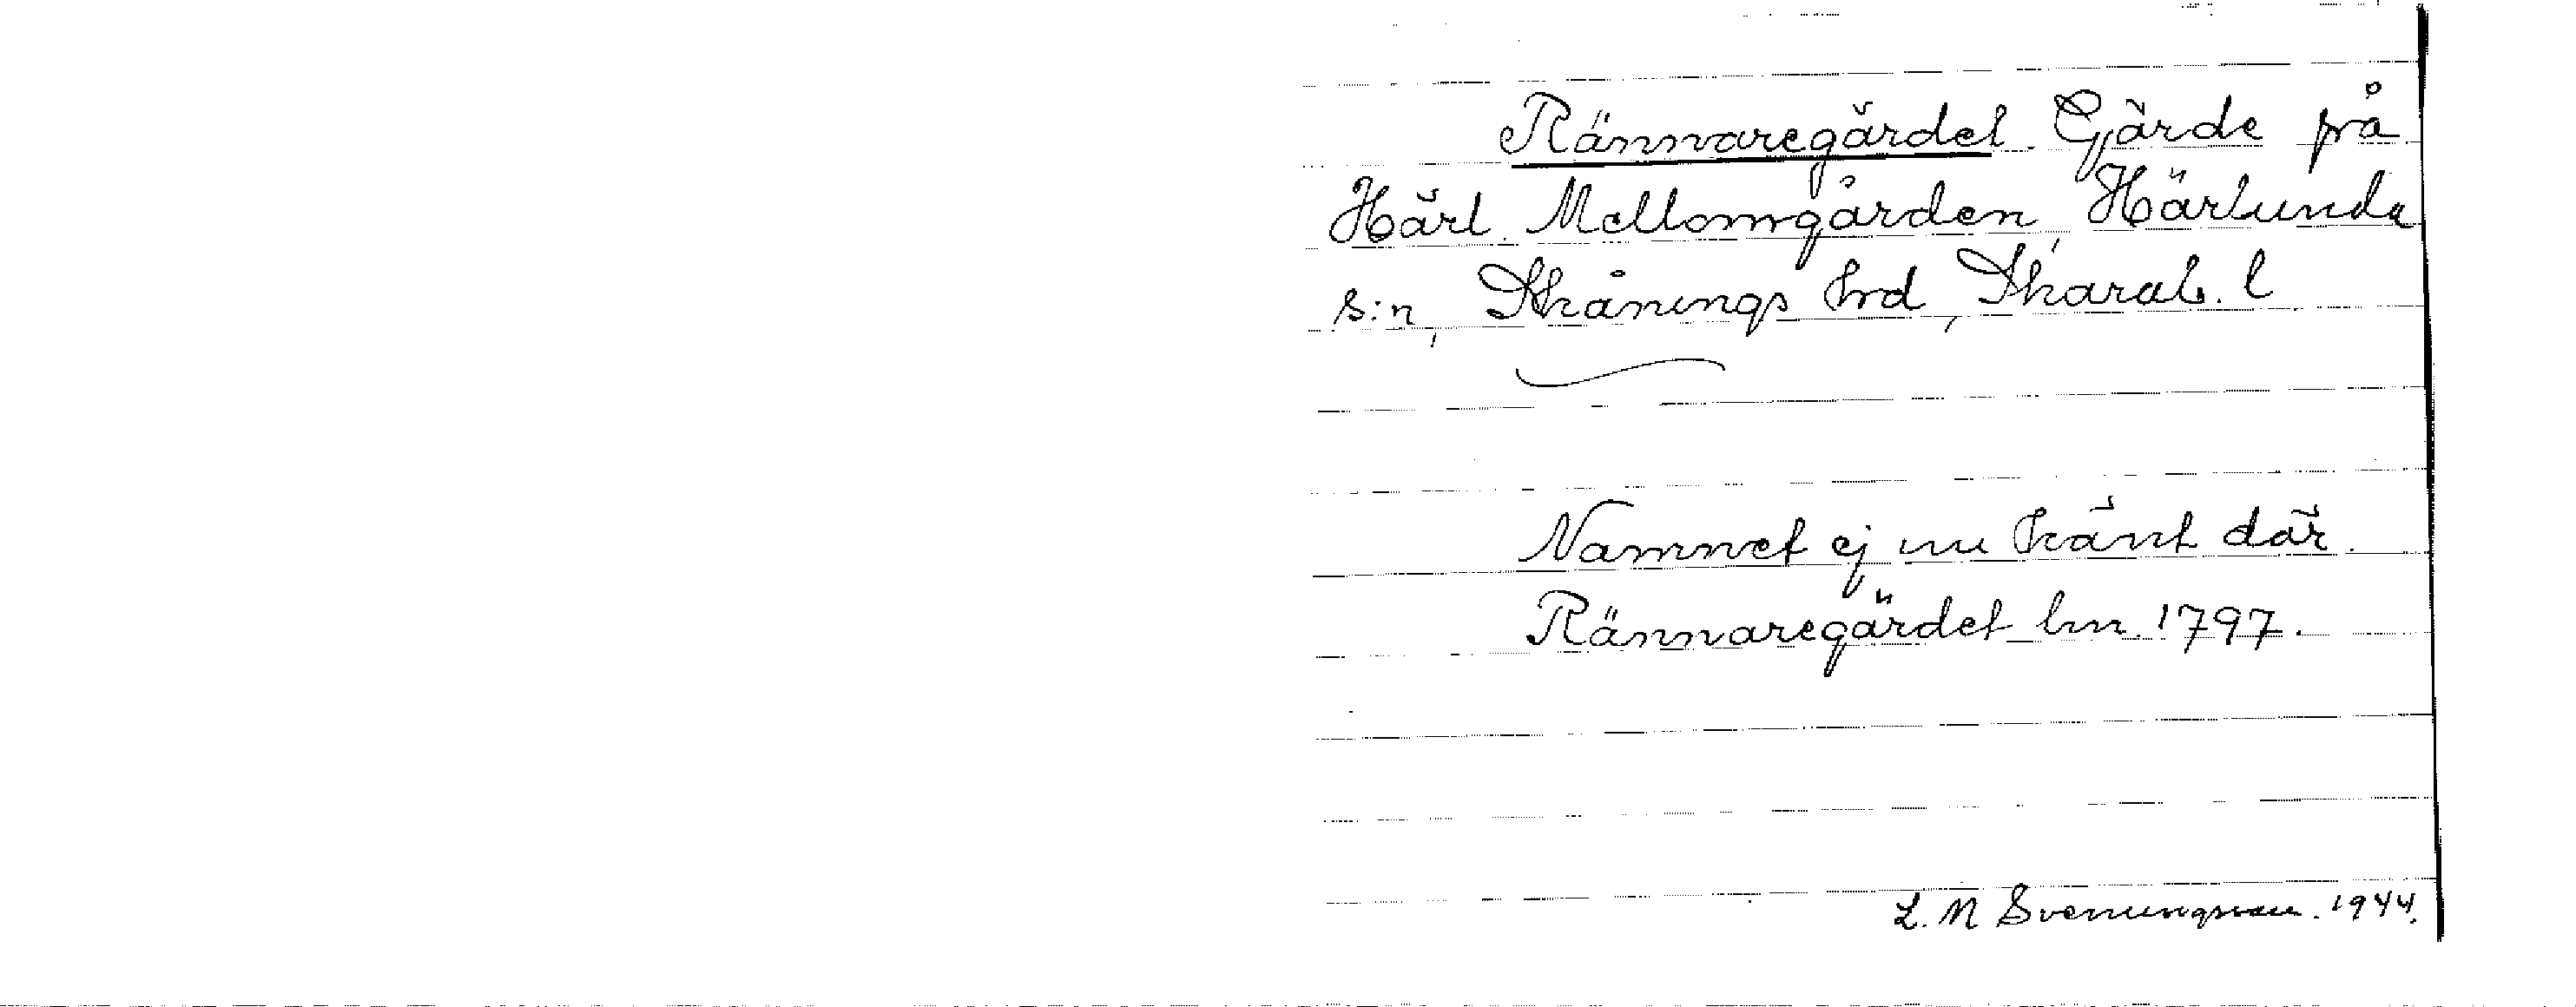 Rännaregärdet Gjärde på
Härl. Mellomgården, Härlunda
s:n, Skånings hrd, Skarab. l
Namnet ej nu känt där.
Rännaregärdet lm. 1797.
L. M Svenungsson. 1944.